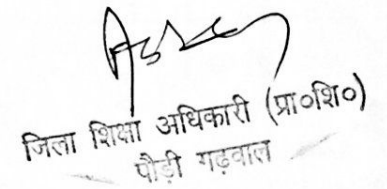 जिला शिक्षा अधिकारी (प्रा०शि०)
पौड़ी गढ़वाल